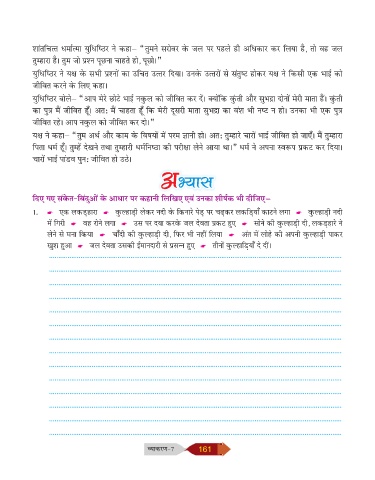 शांतचित्त धर्मात्मा युधिष्ठिर ने कहा– “तुमने सरोवर के जल पर पहले ही अधिकार कर लिया है, तो यह जल
तुम्हारा है। तुम जो प्रश्न पूछना चाहते हो, पूछो।”
युधिष्ठिर ने यक्ष के सभी प्रश्नों का उचित उत्तर दिया। उनके उत्तरों से संतुष्ट होकर यक्ष ने किसी एक भाई को
जीवित करने के लिए कहा।
युधिष्ठिर बोले– “आप मेरे छोटे भाई नकुल को जीवित कर दें। क्योंकि कुंती और सुभद्रा दोनों मेरी माता हैं। कुंती
का पुत्र मैं जीवित हूँ। अतः मैं चाहता हूँ कि मेरी दूसरी माता सुभद्रा का वंश भी नष्ट न हो। उनका भी एक पुत्र
जीवित रहे। आप नकुल को जीवित कर दो।”
यक्ष ने कहा– “तुम अर्थ और काम के विषयों में परम ज्ञानी हो। अतः तुम्हारे चारों भाई जीवित हो जाएँ। मैं तुम्हारा
पिता धर्म हूँ। तुम्हें देखने तथा तुम्हारी धर्मनिष्ठा की परीक्षा लेने आया था।” धर्म ने अपना स्वरूप प्रकट कर दिया।
चारों भाई पांडव पुनः जीवित हो उठे।
अभ्यास
दिए गए संकेत-बिंदुओं के आधार पर कहानी लिखिए एवं उनका शीर्षक भी दीजिए–
1. ☛ एक लकड़हारा ☛ कुल्हाड़ी लेकर नदी के किनारे पेड़ पर चढ़कर लकड़ियाँ काटने लगा ☛ कुल्हाड़ी नदी
में गिरी ☛ वह रोने लगा ☛ उस पर दया करके जल देवता प्रकट हुए ☛ सोने की कुल्हाड़ी दी, लकड़हारे ने
लेने से मना किया ☛ चाँदी की कुल्हाड़ी दी, फिर भी नहीं लिया ☛ अंत में लोहे की अपनी कुल्हाड़ी पाकर
खुश हुआ ☛ जल देवता उसकी ईमानदारी से प्रसन्न हुए ☛ तीनों कुल्हाड़ियाँ दे दीं।
व्याकरण–7 161